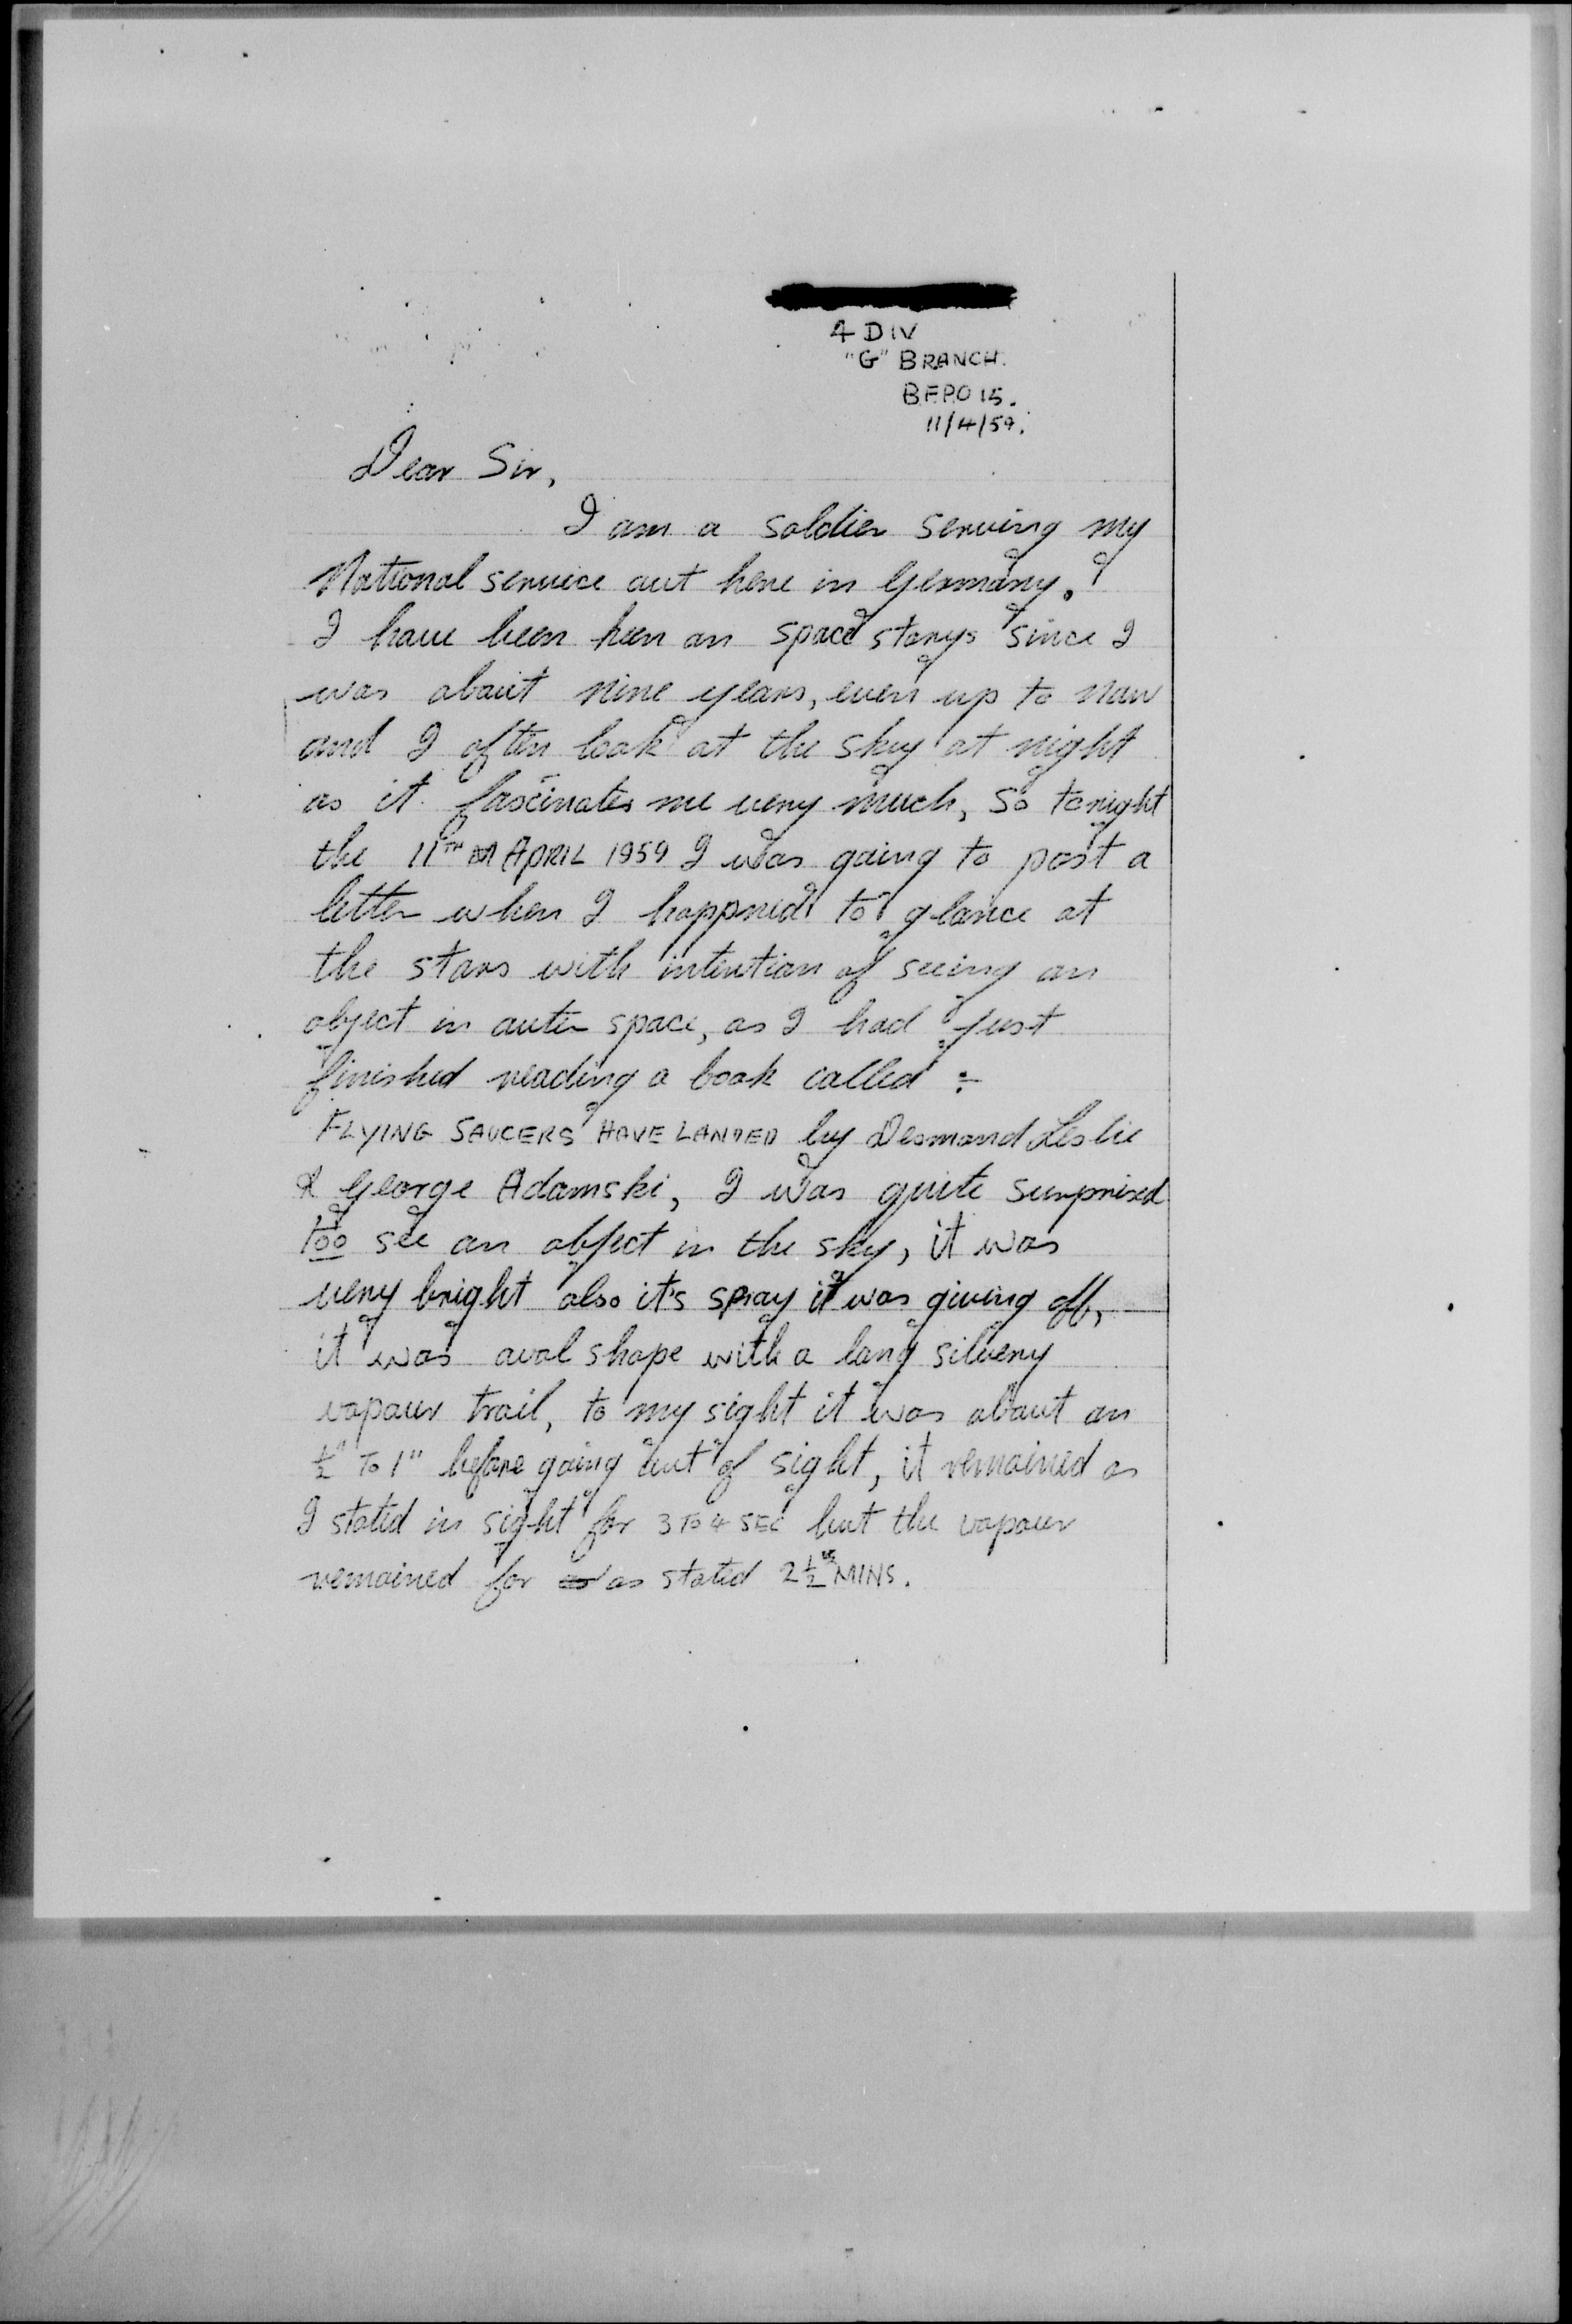 4 DIV
"G" BRANCH.
B.F.P.O 15.
11/4/59.
Dear Sir,
I am a soldier serving my
National service out here in Germany.
I have been keen on space storys since I
was about nine years, even up to now
and I often look at the sky at night
as it fascinates me very much, so tonight
the 11TH APRIL 1959 I was going to post a
letter when I happned to glance at
the stars with intention of seeing an
object in outer space, as I had just
finished reading a book called :-
FLYING SAUCERS HAVE LANDED by Desmond Leslie
& George Adamski, I was quite surprised
too see an object in the sky, it was
very bright also it's spray it was giving off,
it was oval shape with a long silvery
vapour trail, to my sight it was about an
½" TO 1" before going out of sight, it remained as
I stated in sight for 3 TO 4 SEC but the vapour
remained for as stated 2½ MINS.